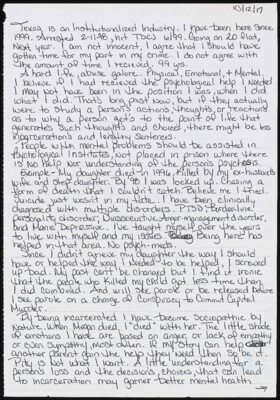 10/12/17
Texas is an Institutionalized Industry. I have been here since
1999. Arrested 2-11-98, hit TDCJ 6/99. Going on 20 flat,
Next year. I am not innocent, I agree that I should have
gotten time for my part in my crime. I do not agree with
the amount of time I received, 99 yrs.
A hard life, abuse galore. Physical, Emotional, & Mental.
I believe if I had received the psychological help I needed
I may not have been in the position I was, when I did
what I did. That's long past now, but if they actually
were to study a person's actions, thoughts, or reactions
as to why a person gets to the point of life that
generates such thoughts and choices, there might be less
incarcerations and lengthy sentences.
People with mental problems should be assisted in
Psychological Institutes, not placed in prison where there
is No Help nor understanding of the person's psychosis.
Example - My daughter died in 1996, killed by my ex-husband's
wife and step daughter. By '98 I was locked up. Chasing a
form of death that I couldn't catch. Believe me I tried.
Suicide just wasn't in my fate. I have been clinically
diagnosed with multiple disorders. PTSD, Borderline
personality disorder, Dissociative, Anger-management disorder,
and Manic Depressive. I've taught myself over the years
to live with myself and my issues. Being here has
helped in that area. No psych-meds.
Since I didn't grieve my daughter the way I should
have or helped the way I needed to be helped, I screwed
up - bad. My past can't be changed but I find it ironic
that the people who killed my child got less time than
I did combined. And will see parole or be released before
I see parole on a charge of Conspiracy to Commit Capital
Murder.
By being incarcerated I have become Sociopathic by
Nature. When Megan died, I "died" with her. The little shade
of emotions I have are based on anger or lack of empathy
or even sympathy, most often. If my story can help
another parent gain the help they need then so be it.
Pity is not what I want. A little understanding for a
person's loss and the decisions, choices, that can lead
to incarceration may garner better mental health